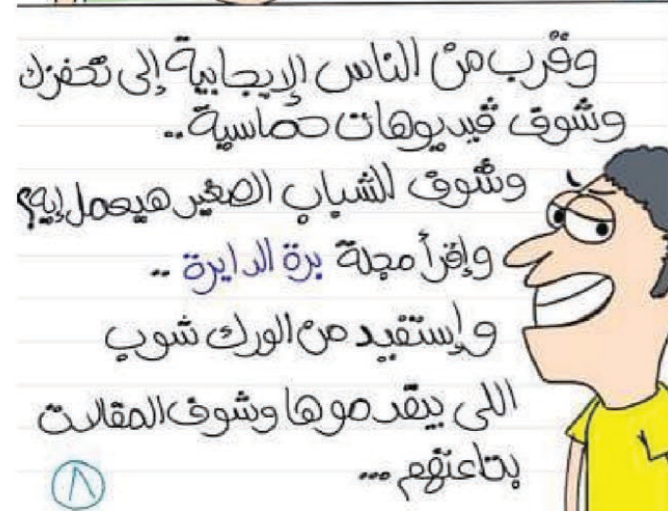 وقرب من الناس الإيجابية إلى تحفزك
وشوف فيديوهات حماسية ..
وشوف الشباب الصغير هيعمل إية؟
وإقرأ مجلة برة الدايرة ..
وإستفيد من الورك شوب
اللى بيقدموها وشوف المقالات
بتاعتهم ...
٨